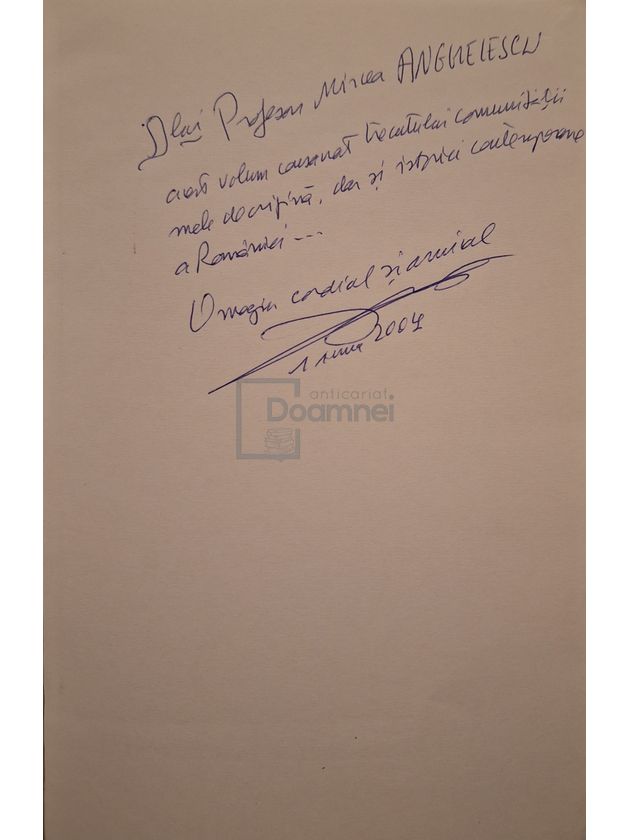 Dlui Profesor Mircea ANGHELESCU
acest volum consacrat trecutului comunității
mele de origină, dar și istoriei contemporane
a României ---
Omagiu cordial și amical
1 iunie 2004
anticariat
Doamnei